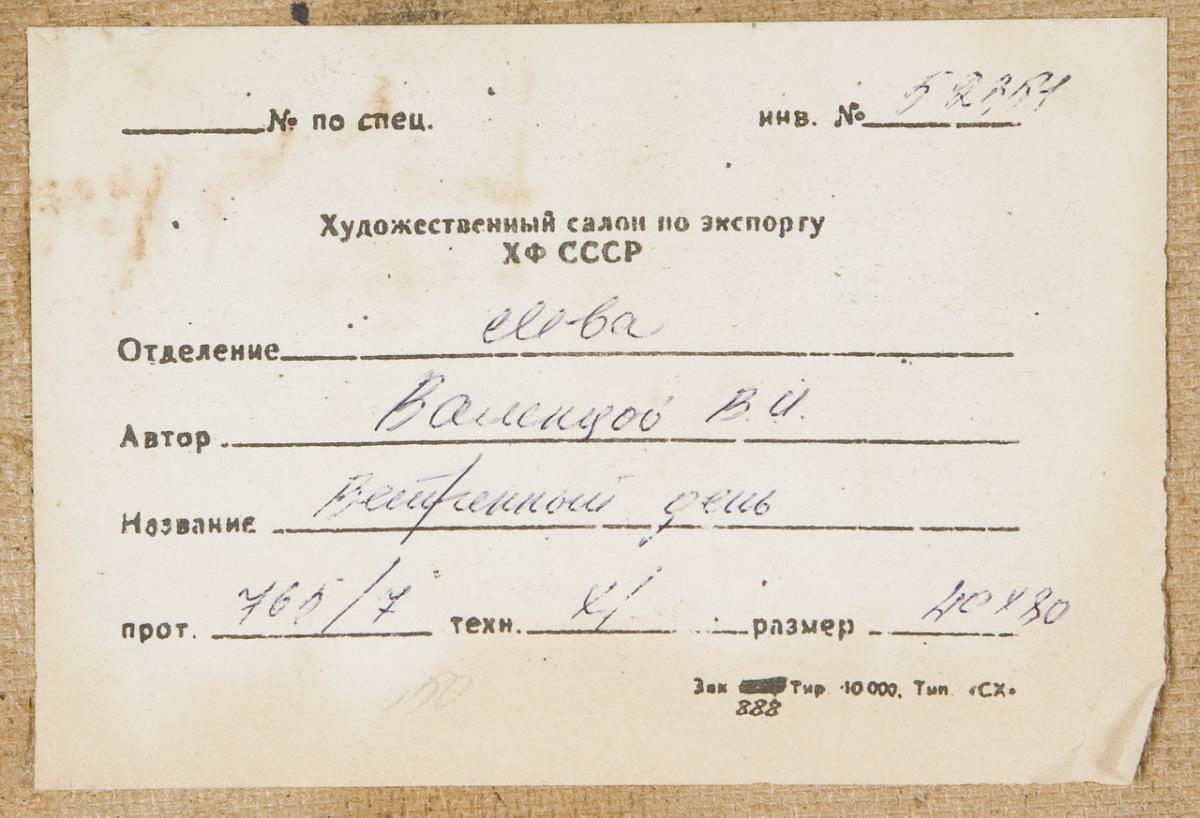 № по спец. инв. №
Художественный салон по экспорту
ХФ СССР
Отделение
Автор Валенцов В.И.
Название Ветренный день
прот. 765/7 техн. х/ размер 40х80
Зак 888 Тир. 10 000. Тип. «СХ»